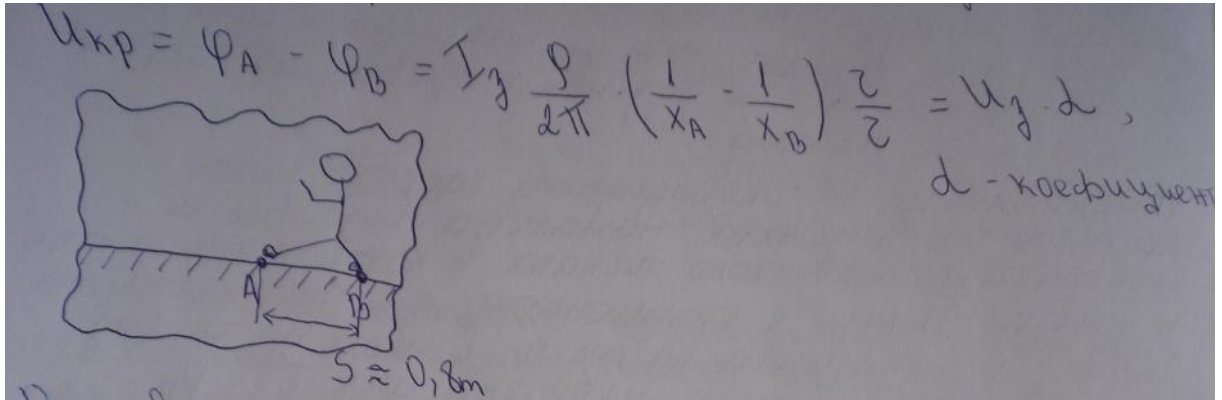 Uкр = φA - φB = Iз ρ/2π · (1/xA - 1/xB) τ/τ = Uз · α,
α - коефициент
A B
S ≈ 0,8m